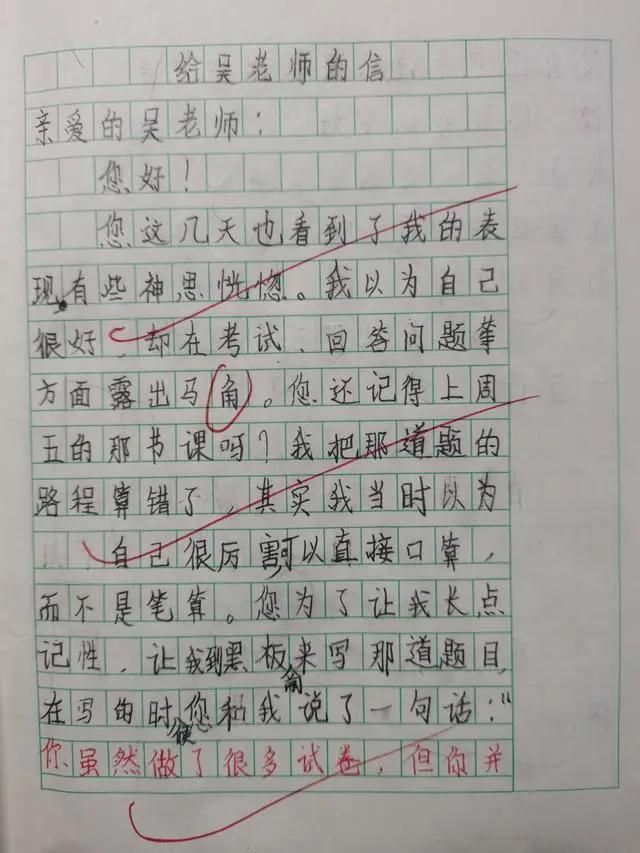 给吴老师的信
亲爱的吴老师：
您好！
您这几天也看到了我的表
现，有些神思恍惚。我以为自己
很好，却在考试、回答问题等
方面露出马角。您还记得上周
五的那节课吗？我把那道题的
路程算错了，其实我当时以为
自己很厉害可以直接口算，
而不是笔算。您为了让我长点
记性，让我到黑板前来写那道题目，
在写的时候您和我说了一句话：“
你虽然做了很多试卷，但你并